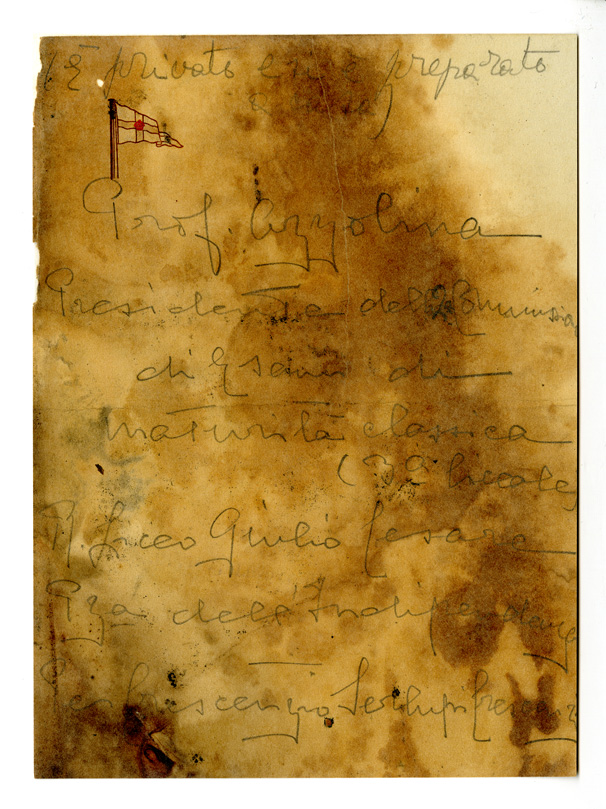 (È privato e si è preparato
a Roma)
Prof. Azzolina
Presidenza della Commissio
di Esami di
maturità classica
(3ª liceale)
R. Liceo Giulio Cesare
Pza dell'Indipendenza
Crescenzio Serlupi Crescenzi